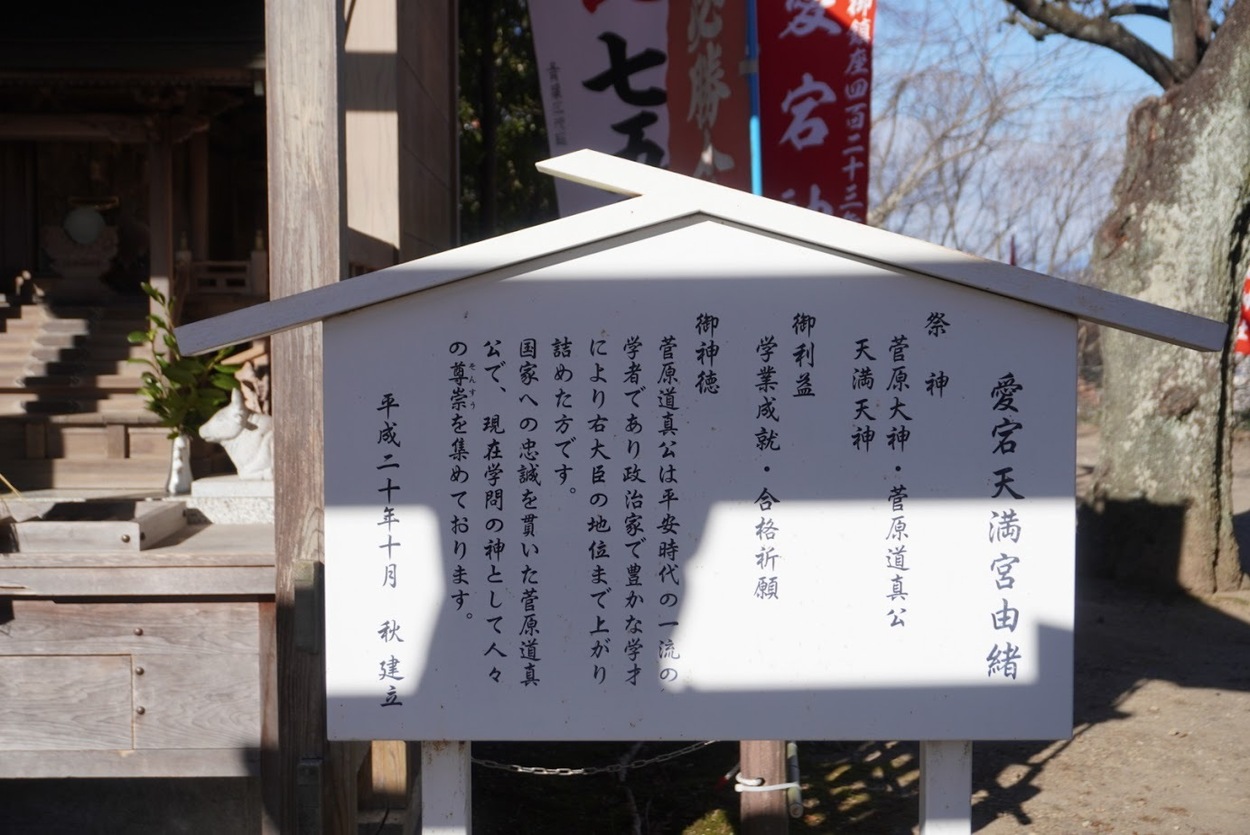 愛宕天満宮由緒
祭　神
菅原大神・菅原道真公
天満天神
御利益
学業成就・合格祈願
御神徳
菅原道真公は平安時代の一流の
学者であり政治家で豊かな学才
により右大臣の地位まで上がり
詰めた方です。
国家への忠誠を貫いた菅原道真
公で、現在学問の神として人々
の尊崇を集めております。
そんすう
平成二十年十月　秋建立
御鎮座四百二十三年
愛宕神
必勝合
七五